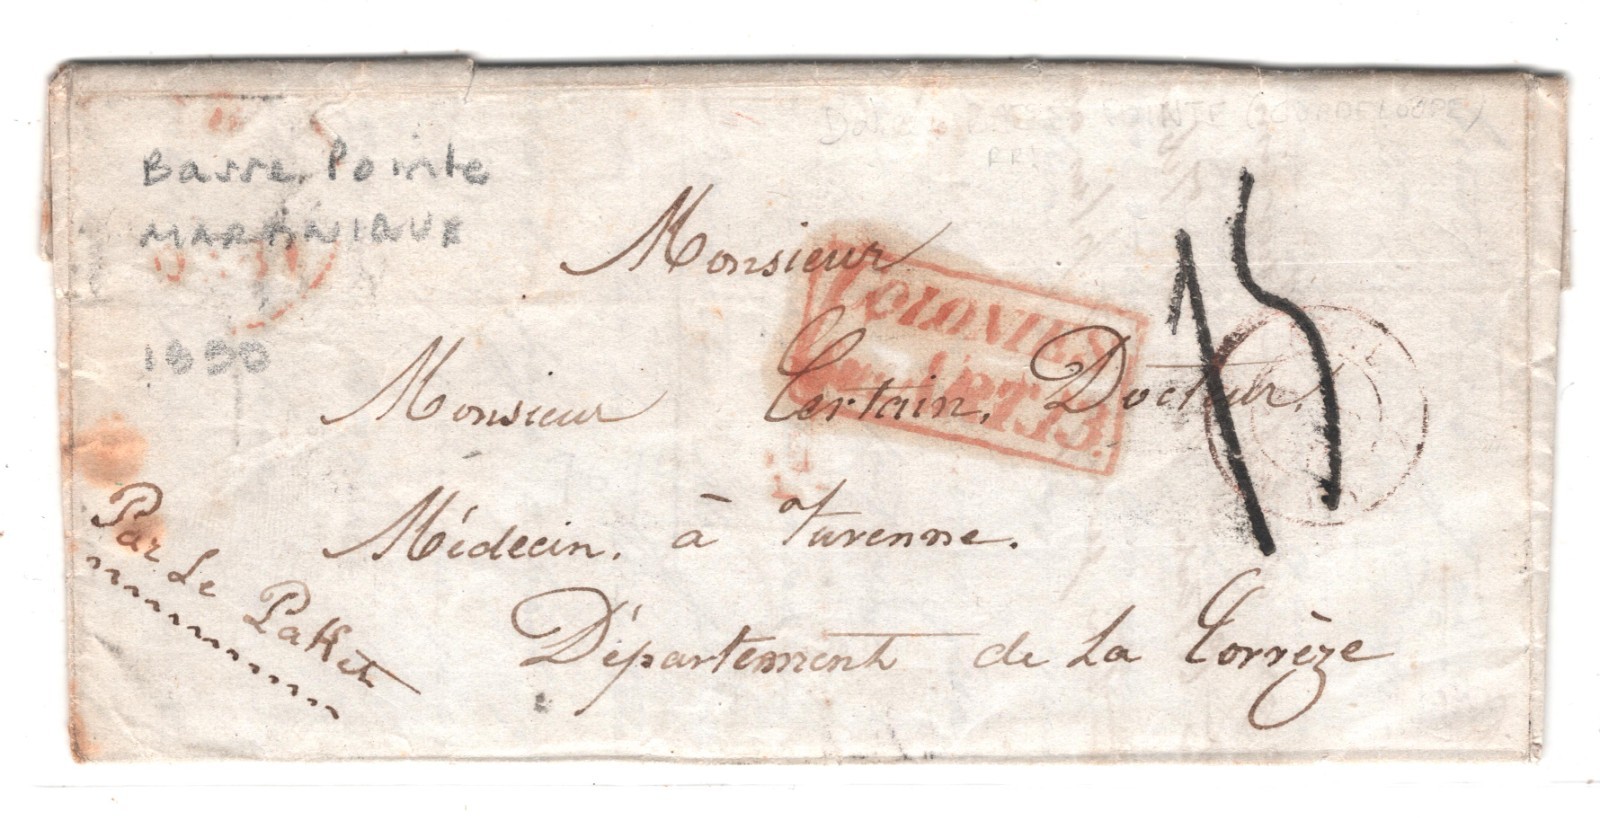 POINTE (GUADELOUPE)
RR!
Basse Pointe
MARTINIQUE
1850
Monsieur
COLONIES
ART.13.
15
Monsieur Certain, Docteur,
Médecin. à Turenne.
Par Le Paket
Département de La Corrèze